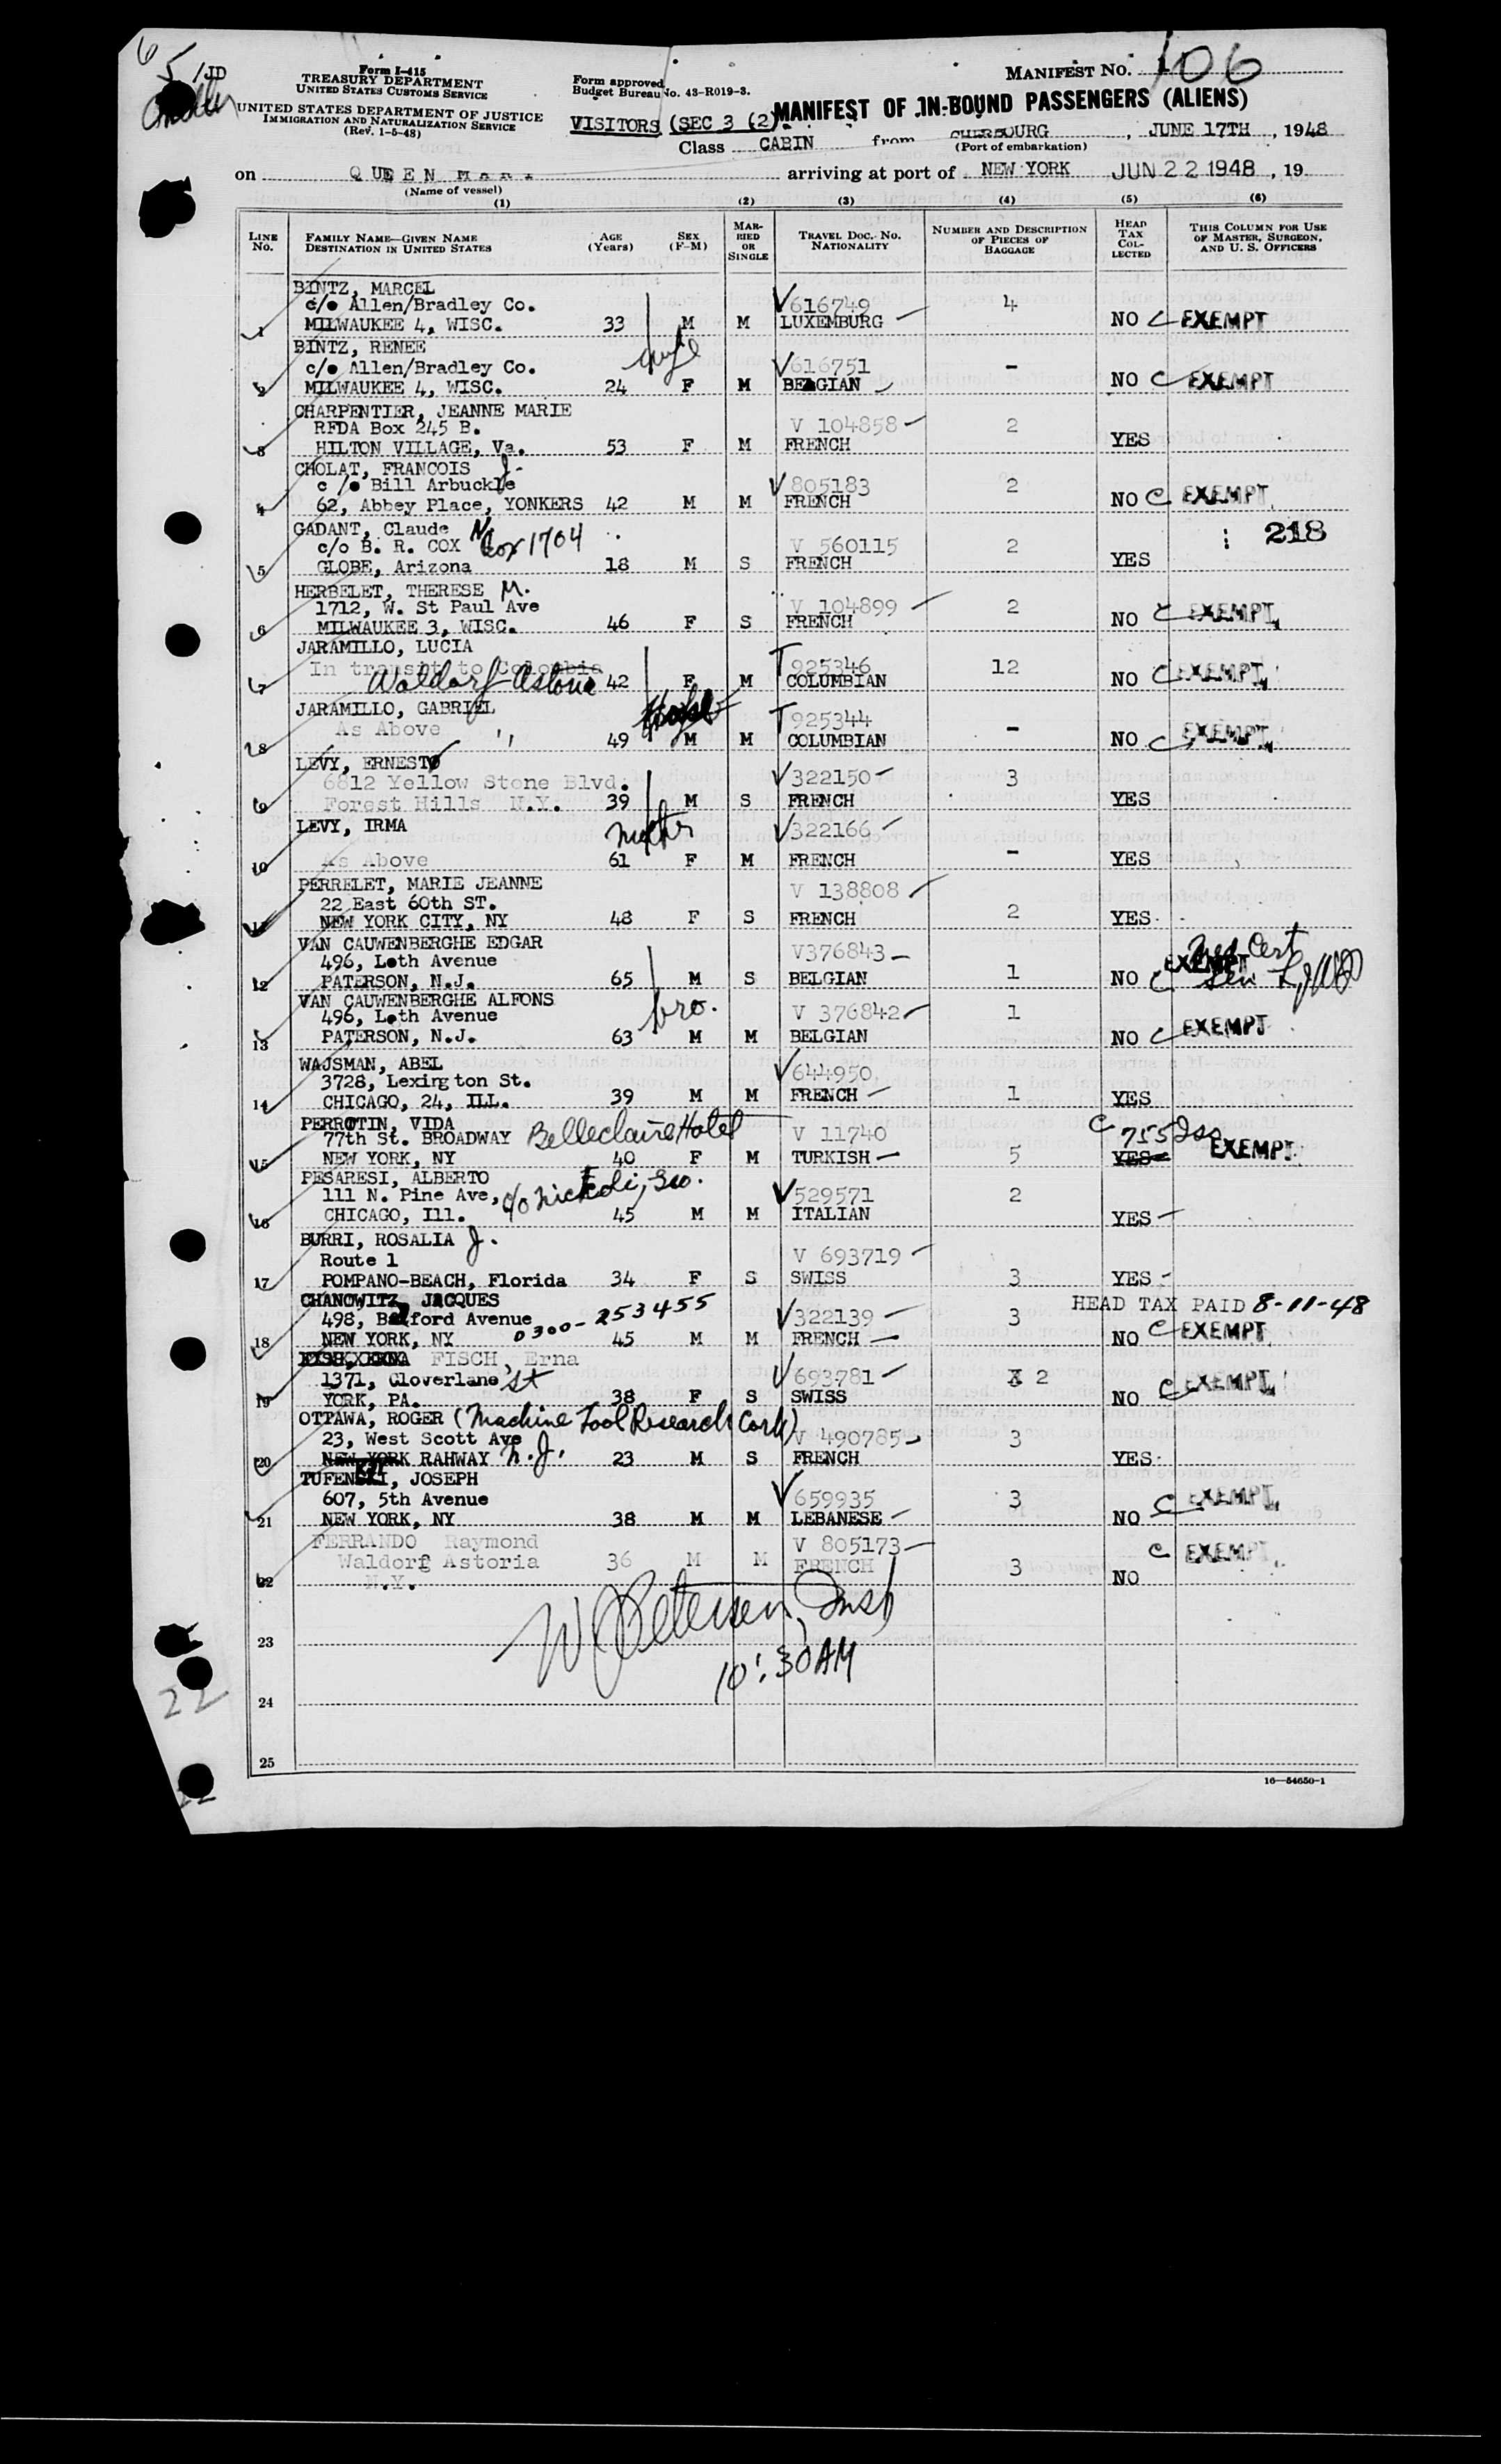 65 /JD
Form I-415
TREASURY DEPARTMENT
UNITED STATES CUSTOMS SERVICE
UNITED STATES DEPARTMENT OF JUSTICE
IMMIGRATION AND NATURALIZATION SERVICE
(Rev. 1-5-48)
Form approved
Budget Bureau No. 43-R019-3.
MANIFEST NO. 106
MANIFEST OF IN-BOUND PASSENGERS (ALIENS)
VISITORS (SEC 3 (2)
Class CABIN from CHERBOURG, JUNE 17TH, 1948
(Port of embarkation)
on QUEEN MARY arriving at port of NEW YORK JUN 22 1948, 19
(Name of vessel)
(1) (2) (3) (4) (5) (6)
LINE NO. FAMILY NAME—GIVEN NAME DESTINATION IN UNITED STATES AGE (Years) SEX (F-M) MARRIED OR SINGLE TRAVEL DOC. NO. NATIONALITY NUMBER AND DESCRIPTION OF PIECES OF BAGGAGE HEAD TAX COLLECTED THIS COLUMN FOR USE OF MASTER, SURGEON, AND U. S. OFFICERS
BINTZ, MARCEL
c/o Allen/Bradley Co. V 616749 4
1 MILWAUKEE 4, WISC. 33 M M LUXEMBURG NO C EXEMPT
wife
BINTZ, RENEE
c/o Allen/Bradley Co. V 616751 -
2 MILWAUKEE 4, WISC. 24 F M BELGIAN NO C EXEMPT
CHARPENTIER, JEANNE MARIE
RFDA Box 245 B. V 104858 2
3 HILTON VILLAGE, Va. 53 F M FRENCH YES
CHOLAT, FRANCOIS J.
c/o Bill Arbuckle V 805183 2
4 62, Abbey Place, YONKERS 42 M M FRENCH NO C EXEMPT
GADANT, Claude N. 218
c/o B. R. COX Box 1704 V 560115 2
5 GLOBE, Arizona 18 M S FRENCH YES
HERBELET, THERESE M.
1712, W. St Paul Ave V 104899 2
6 MILWAUKEE 3, WISC. 46 F S FRENCH NO C EXEMPT
JARAMILLO, LUCIA
In transit to Colombia T 925346 12
7 Waldorf Astoria 42 F M COLUMBIAN NO C EXEMPT
JARAMILLO, GABRIEL
As Above " T 925344 -
8 49 M M COLUMBIAN NO C EXEMPT
LEVY, ERNEST
6812 Yellow Stone Blvd. V 322150 3
9 Forest Hills N.Y. 39 M S FRENCH YES
mother
LEVY, IRMA V 322166
10 As Above 61 F M FRENCH - YES
PERRELET, MARIE JEANNE V 138808
22 East 60th ST.
11 NEW YORK CITY, NY 48 F S FRENCH 2 YES
VAN CAUWENBERGHE EDGAR V376843
496, Loth Avenue
12 PATERSON, N.J. 65 M S BELGIAN 1 NO C EXEMPT Med Cert
bro.
VAN CAUWENBERGHE ALFONS
496, Loth Avenue V 376842 1
13 PATERSON, N.J. 63 M M BELGIAN NO C EXEMPT
WAJSMAN, ABEL
3728, Lexington St. V 644950
14 CHICAGO, 24, ILL. 39 M M FRENCH 1 YES
PERROTIN, VIDA
77th St. BROADWAY Belleclaire Hotel V 11740 C 755
15 NEW YORK, NY 40 F M TURKISH 5 YES EXEMPT
PESARESI, ALBERTO
111 N. Pine Ave, c/o V 529571 2
16 CHICAGO, Ill. 45 M M ITALIAN YES
BURRI, ROSALIA J.
Route 1 V 693719
17 POMPANO-BEACH, Florida 34 F S SWISS 3 YES
CHANOWITZ, JACQUES HEAD TAX PAID 8-11-48
498, Bedford Avenue 0300-253455 V 322139 3
18 NEW YORK, NY 45 M M FRENCH NO C EXEMPT
FISCH, Erna
1371, Cloverlane St V 693781 2
19 YORK, PA. 38 F S SWISS NO C EXEMPT
OTTAWA, ROGER (Machine Tool Research Corp)
23, West Scott Ave V 490785 3
20 NEW YORK RAHWAY N.J. 23 M S FRENCH YES
TUFENKJI, JOSEPH
607, 5th Avenue V 659935 3
21 NEW YORK, NY 38 M M LEBANESE NO C EXEMPT
FERRANDO Raymond V 805173
Waldorf Astoria 36 M M FRENCH 3 C EXEMPT
22 N.Y. NO
W Petersen, Insp
23 10:30 AM
24
25
22
16—54650-1